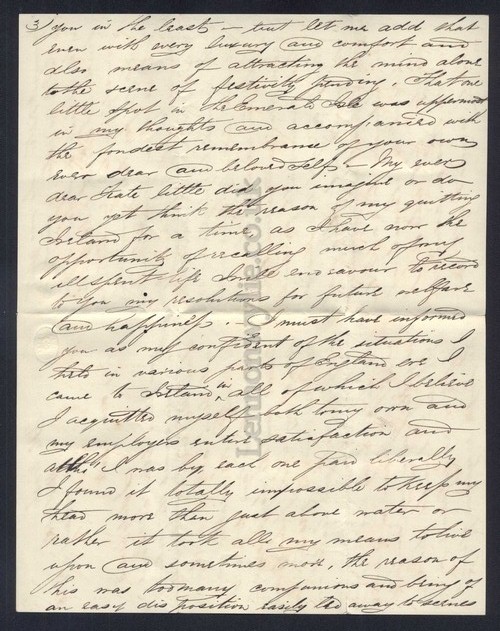 3) you in the least — but let me add that
even with every luxury and comfort and
also means of attracting the mind alone
to the scene of festivity pending, that one
little spot in the Emerald Isle was uppermost
in my thoughts and accompanied with
the fondest remembrance of your own
ever dear and beloved self. My ever
dear Kate little did you imagine or do
you yet think the reason of my quitting
Ireland for a time, as I have now the
opportunity of recalling much of my
illspent life I will endeavour to record
to you my resolutions for future welfare
and happiness. I must have informed
you as my confident of the situations I
held in various parts of England ere I
came to Ireland in all of which I believe
I acquitted myself both to my own and
my employers entire satisfaction and
altho' I was by each one paid liberally
I found it totally impossible to keep my
head more than just above water or
rather it took all my means to live
upon and sometimes more, the reason of
this was too many companions and being of
an easy disposition easily led away to scenes
Lemonpyne.co.uk